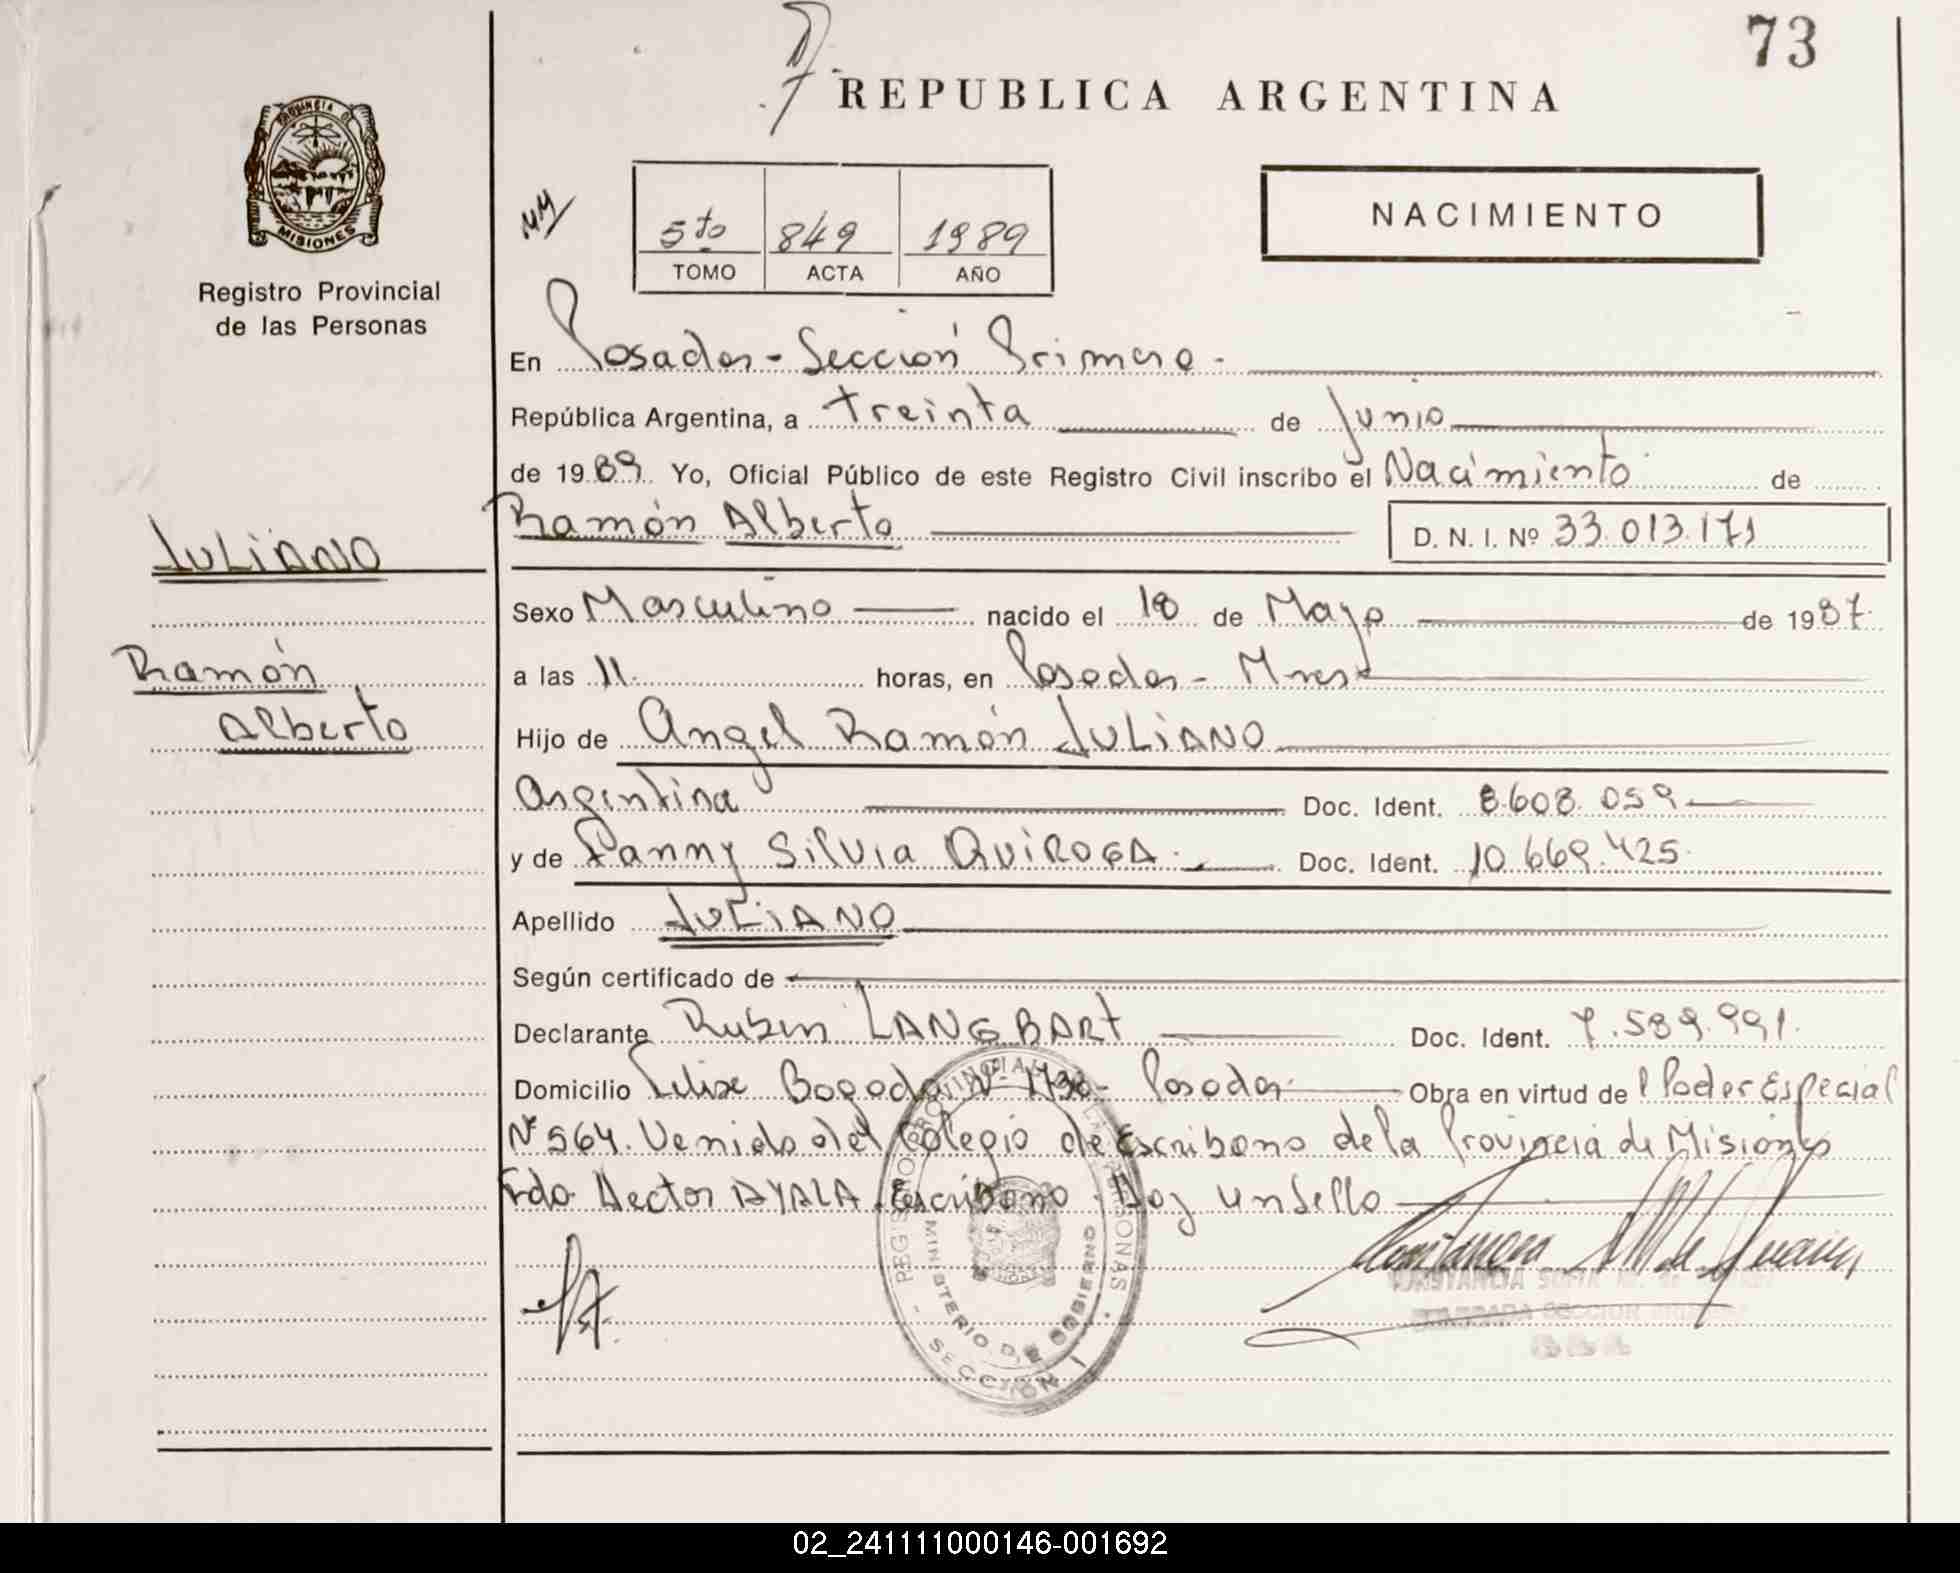 73
REPUBLICA ARGENTINA
PROVINCIA DE
MISIONES
Registro Provincial
de las Personas
5to 849 1989
TOMO ACTA AÑO
NACIMIENTO
En Posadas - Sección Primera -
República Argentina, a treinta de Junio
de 1989. Yo, Oficial Público de este Registro Civil inscribo el Nacimiento de
Ramón Alberto D. N. I. Nº 33.013.171
JULIANO
Sexo Masculino nacido el 18 de Mayo de 1987.
Ramón
a las 11. horas, en Posadas - Mnes
Alberto
Hijo de Angel Ramón JULIANO
Argentina Doc. Ident. 8.608.059
y de Fanny Silvia QUIROGA. Doc. Ident. 10.669.425.
Apellido JULIANO
Según certificado de
Declarante Ruben LANGBART Doc. Ident. 7.589.991.
Domicilio Felix Bogado Nº 1730 - Posadas Obra en virtud de Poder Especial
Nº 564. Venido del Colegio de Escribano de la Provincia de Misiones
Fdo. Hector AYALA. Escribano. Hay un Sello
REGISTRO PROVINCIAL DE LAS PERSONAS
MINISTERIO DE GOBIERNO
SECCION 1
02_241111000146-001692